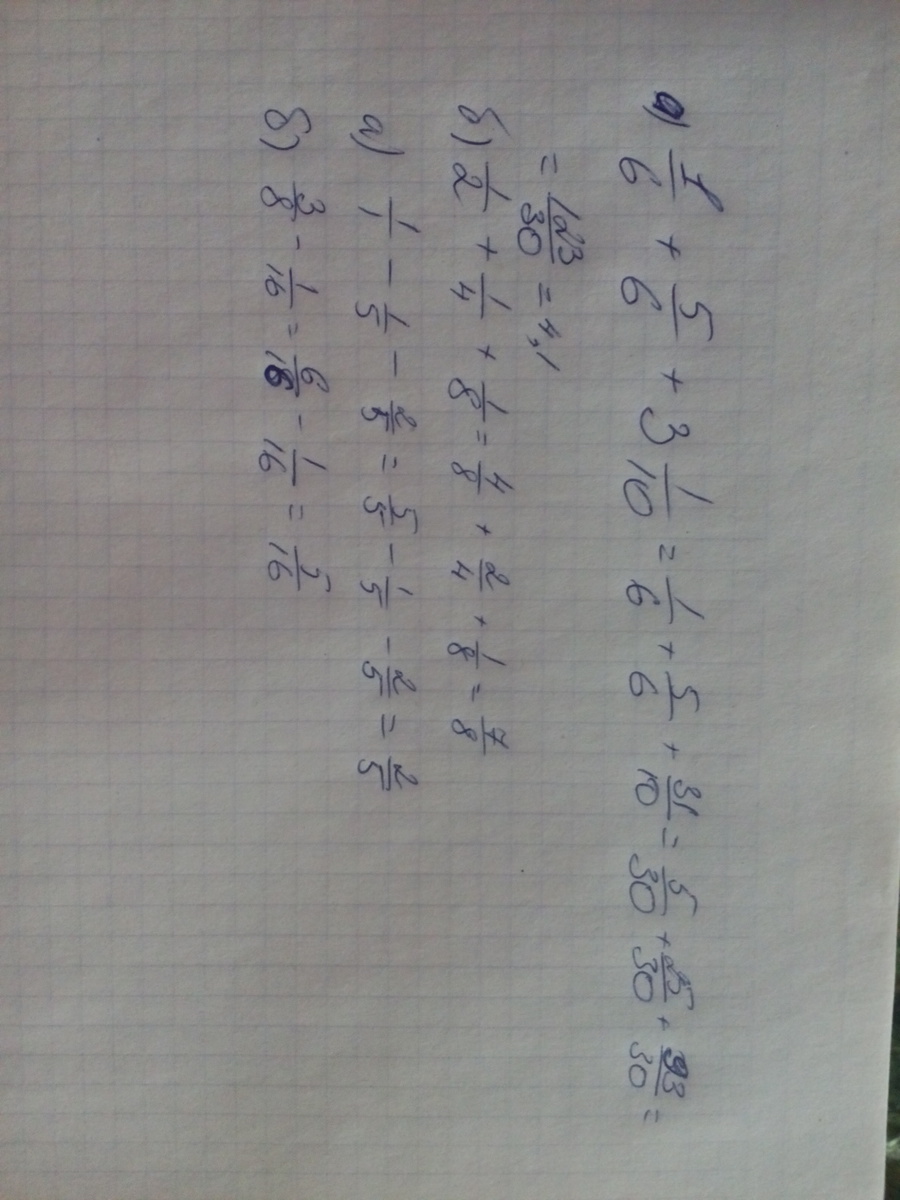 а) 1/6 + 5/6 + 3 1/10 = 1/6 + 5/6 + 31/10 = 5/30 + 25/30 + 93/30 =
= 123/30 = 4,1
б) 1/2 + 1/4 + 1/8 = 4/8 + 2/4 + 1/8 = 7/8
а) 1/1 - 1/5 - 2/5 = 5/5 - 1/5 - 2/5 = 2/5
б) 3/8 - 1/16 = 6/16 - 1/16 = 5/16